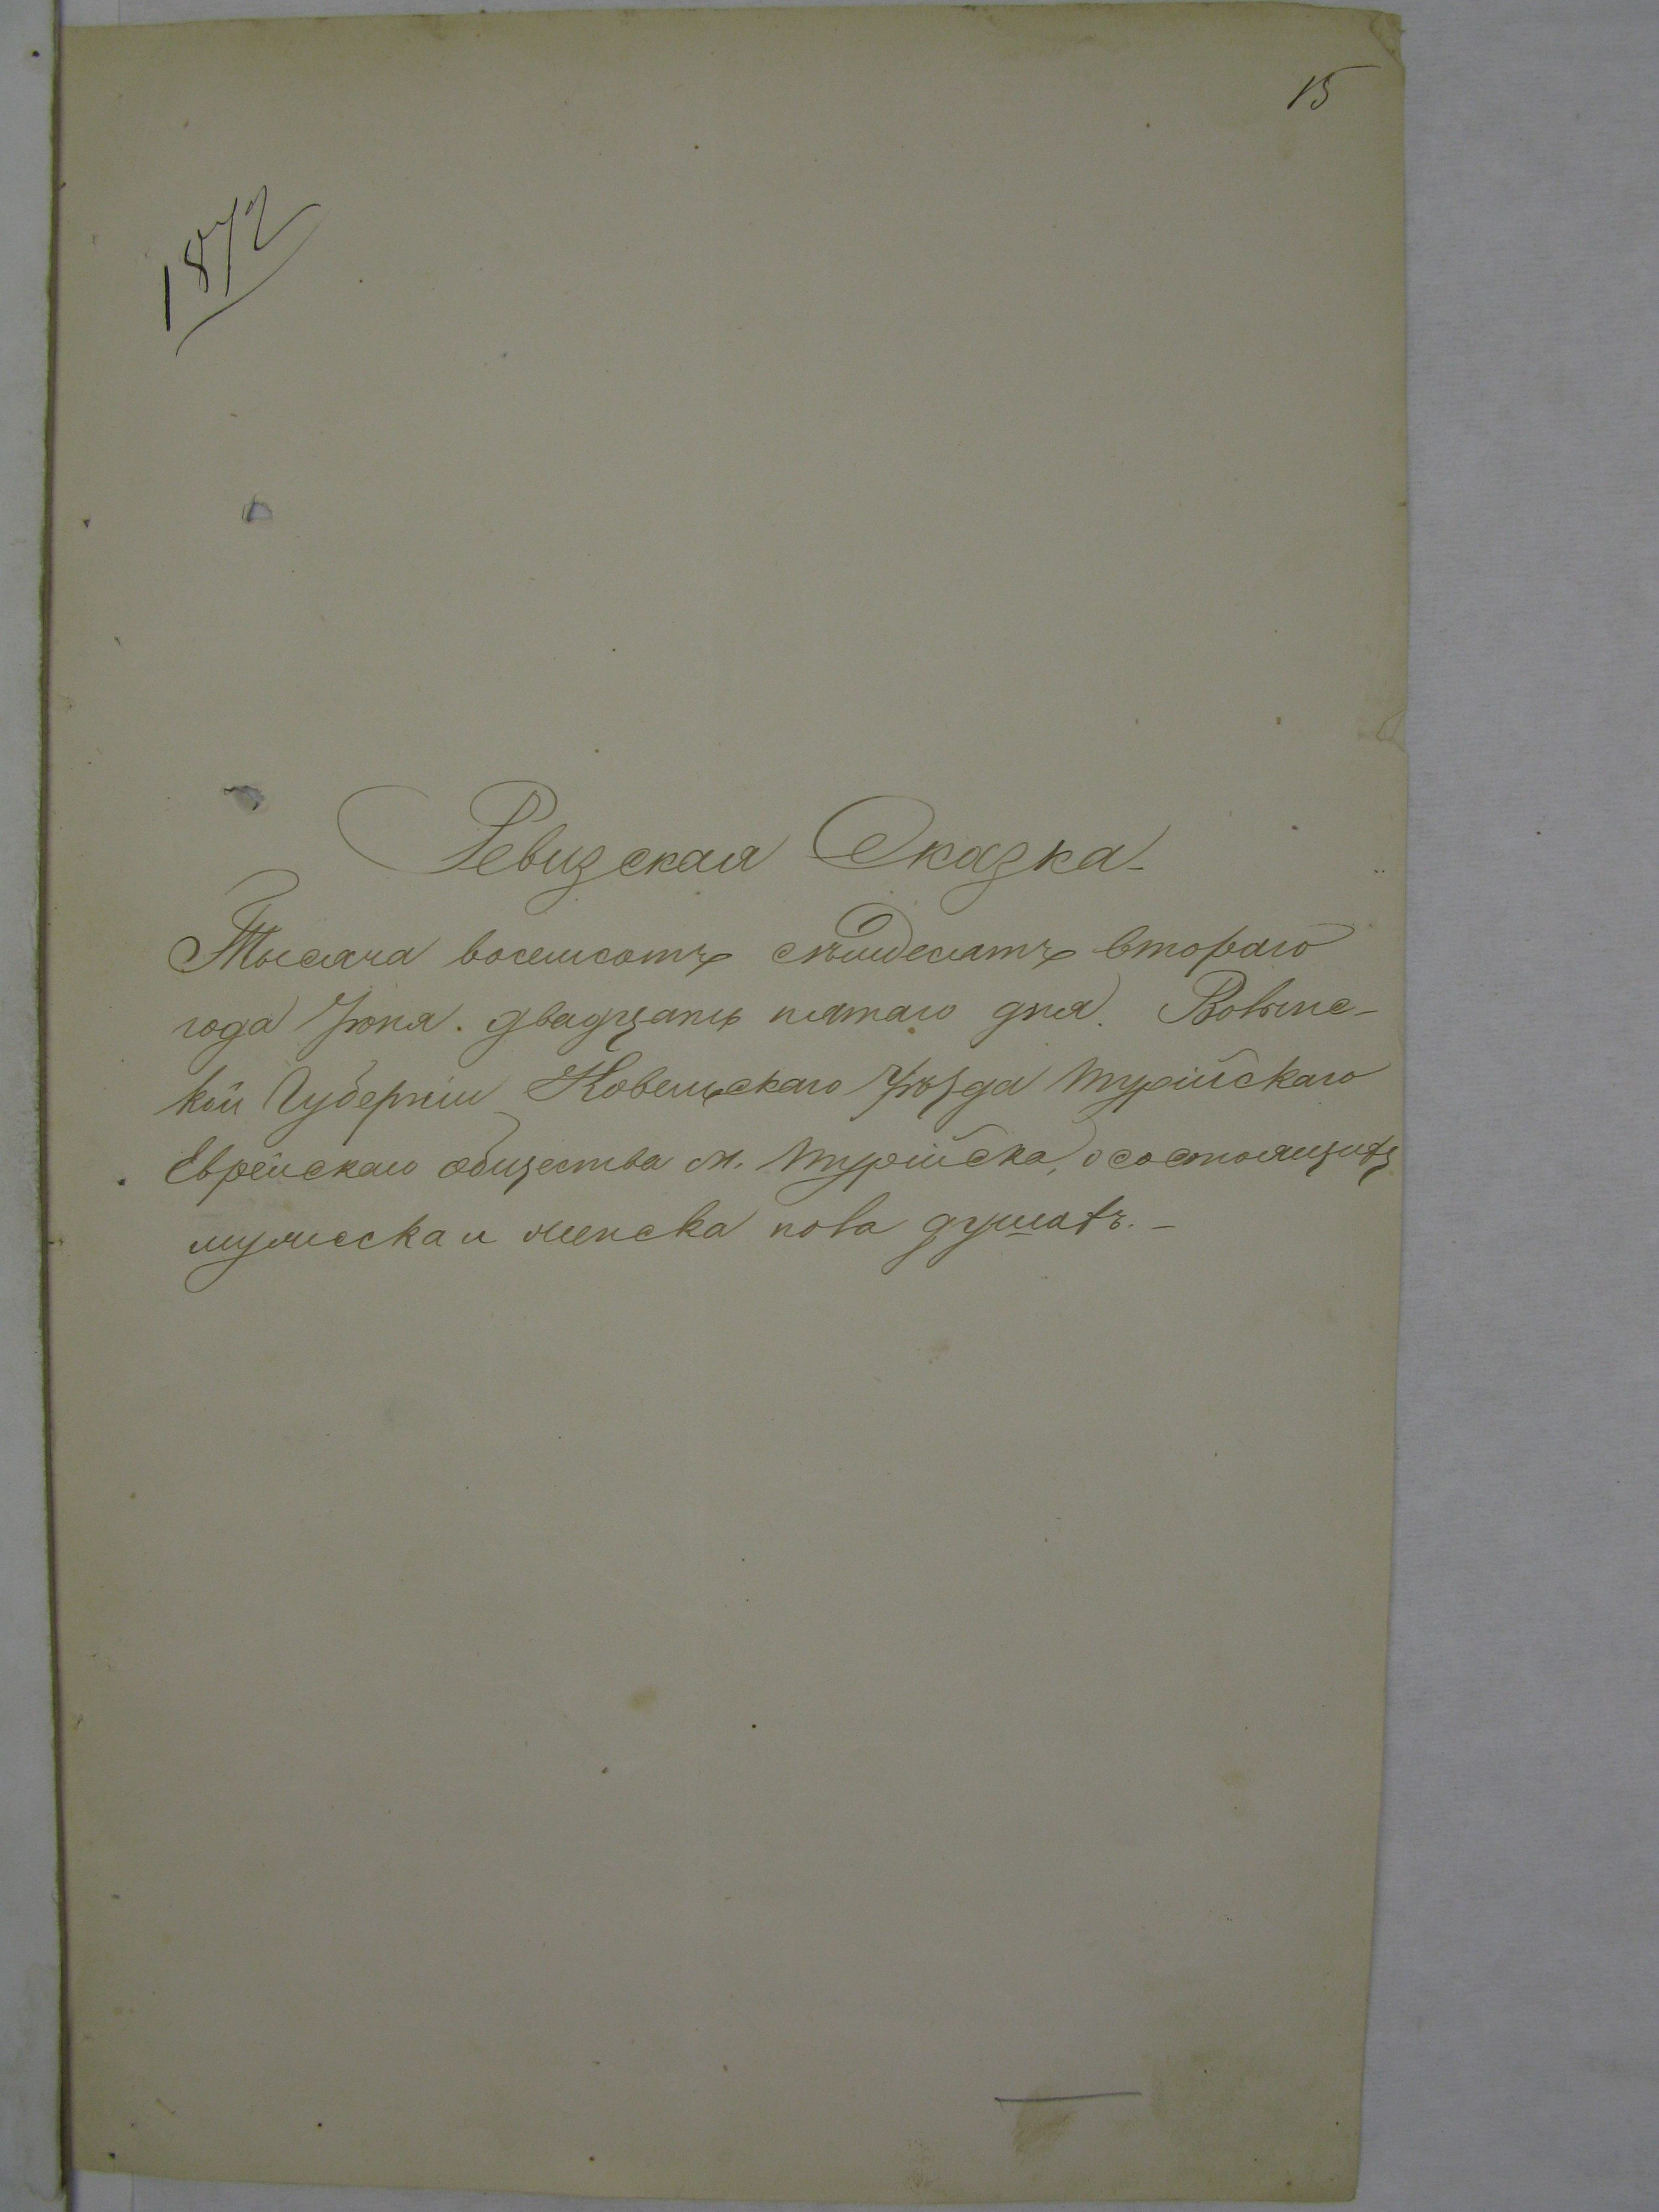 15
1872
Ревизская Сказка
Тысяча восемсотъ семдесятъ втораго
года Іюня. двадцать пятаго дня. Волынс-
кой Губерніи Ковельскаго Уѣзда Турійскаго
Еврейскаго общества м. Турійска, о состоящихъ
мужеска и женска пола душахъ. -